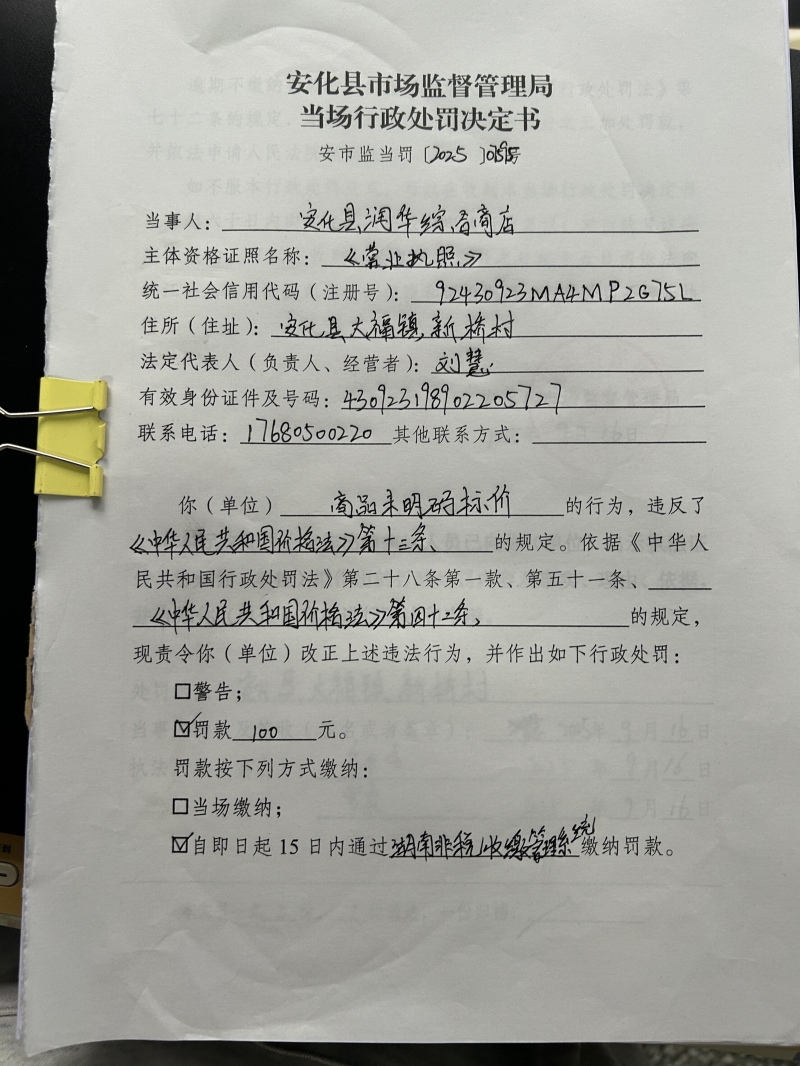 安化县市场监督管理局
当场行政处罚决定书
安市监当罚〔2025〕号
当事人：安化县润华综合商店
主体资格证照名称：《营业执照》
统一社会信用代码（注册号）：92430923MA4MP2G75L
住所（住址）：安化县大福镇新桥村
法定代表人（负责人、经营者）：刘慧
有效身份证件及号码：430923198902205727
联系电话：17680500220 其他联系方式：
你（单位）商品未明码标价的行为，违反了
《中华人民共和国价格法》第十三条、的规定。依据《中华人
民共和国行政处罚法》第二十八条第一款、第五十一条、
《中华人民共和国价格法》第四十二条、的规定，
现责令你（单位）改正上述违法行为，并作出如下行政处罚：
□警告；
☑罚款 100 元。
罚款按下列方式缴纳：
□当场缴纳；
☑自即日起 15 日内通过湖南非税收缴管理系统缴纳罚款。